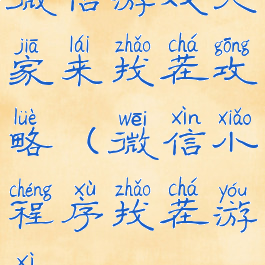 jiā lái zhǎo chá gōng
家来找茬攻
lüè wēi xìn xiǎo
略（微信小
chéng xù zhǎo chá yóu
程序找茬游
xì